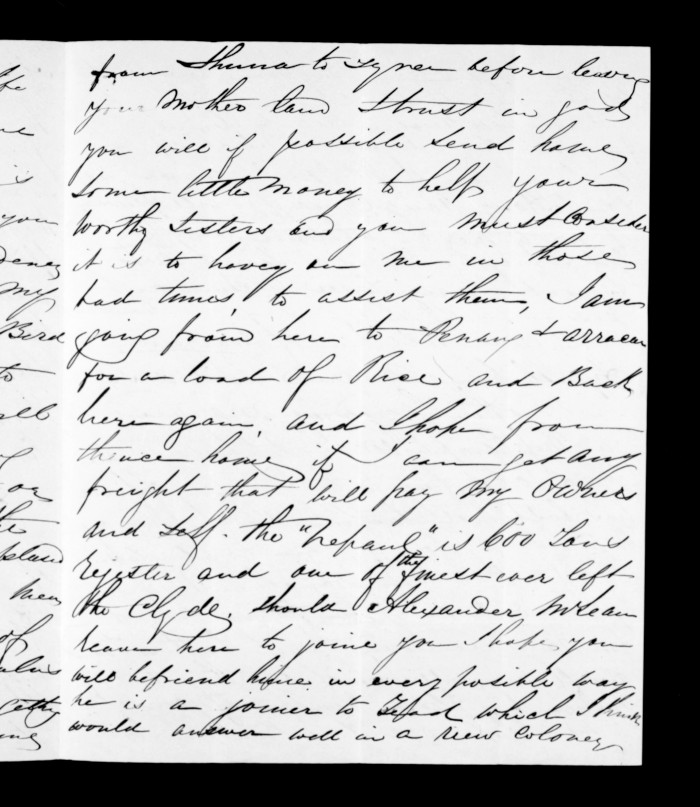 from Shuna to Tyree before leaving
your mother land I trust in god
you will if possible send home
some little money to help your
worthy sisters and you must Consider
it is to havey on me in those
bad times, to assist them, I am
going from here to Penang & arracan
for a load of Rice and Back
here again, and I hope from
thence home if I can get any
freight that will pay my Owners
and self. the "Nepaul" is 600 Tons
Register and one of the finest ever left
the Clyde. Should Alexander McLean
leave here to joine you I hope you
will befriend hime in every posible way
he is a joiner to Trad which I think
would answer well in a new coloney
you
my
Bird
to
or
the
men
of